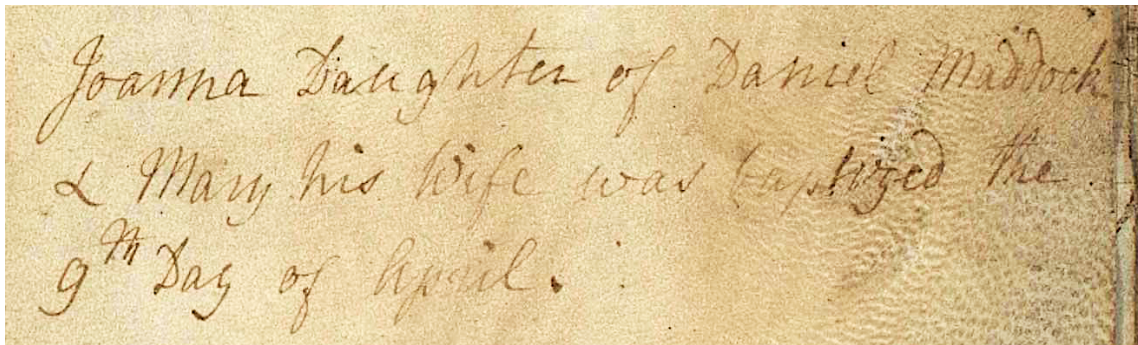 Joanna Daughter of Daniel Maddock
& Mary his Wife was baptized the
9th Day of April.